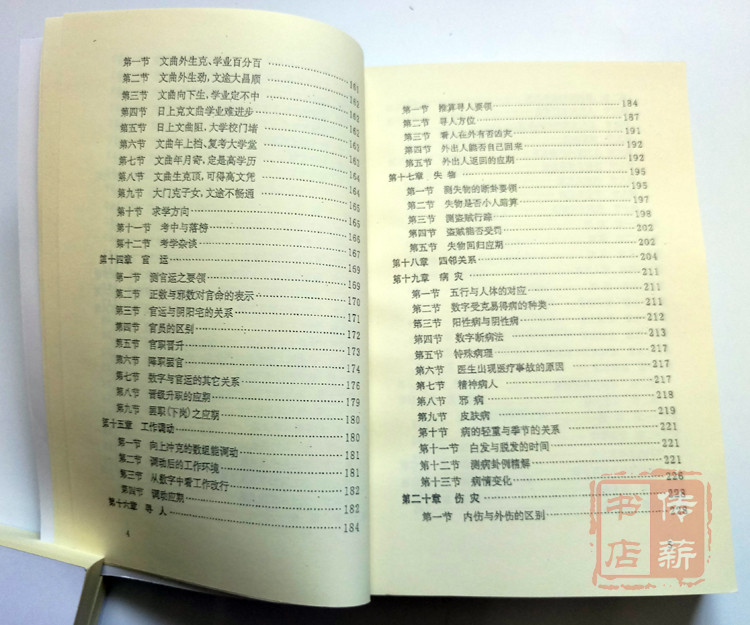 第一节 文曲外生克、学业百分百 161
第二节 文曲外生劲,文途大昌顺 160
第三节 文曲向下生,学业定不中 162
第四节 日上克文曲学业难进步 162
第五节 日上文曲阻,大学校门堵 162
第六节 文曲年上档、复考大学堂 164
第七节 文曲年月寄,定是高学历 164
第八节 文曲生克顶,可得高文凭 165
第九节 大门克子女,文途不畅通 165
第十节 求学方向 165
第十一节 考中与落榜 165
第十二节 考学杂谈 167
第十四章 官 运 169
第一节 测官运之要领 169
第二节 正数与邪数对官命的表示 170
第三节 官运与阴阳宅的关系 171
第四节 官员的区别 172
第五节 官职晋升 173
第六节 降职罢官 174
第七节 数字与官运的其它关系 176
第八节 晋级升职的应期 179
第九节 困职(下岗)之应期 180
第十五章 工作调动 180
第一节 向上冲克的数组能调动 181
第二节 调动后的工作环境 181
第三节 从数字中看工作改行 182
第四节 调动应期 182
第十六章 寻 人 184
4
第一节 推算寻人要领 184
第二节 寻人方位 187
第三节 看人在外有否凶灾 191
第四节 外出人能否自己回来 192
第五节 外出人返回的应期 192
第十七章 失 物 195
第一节 测失物的断卦要领 195
第二节 失物是否小人暗算 197
第三节 测盗贼行踪 198
第四节 盗贼能否受罚 202
第五节 失物回归应期 202
第十八章 四邻关系 204
第十九章 病 灾 211
第一节 五行与人体的对应 211
第二节 数字受克易得病的种类 211
第三节 阳性病与阴性病 212
第四节 数字断病法 213
第五节 特殊病理 217
第六节 医生出现医疗事故的原因 217
第七节 精神病人 217
第八节 邪 病 218
第九节 皮肤病 219
第十节 病的轻重与季节的关系 221
第十一节 白发与脱发的时间 221
第十二节 测病卦例精解 221
第十三节 病情变化 226
第二十章 伤 灾 228
第一节 内伤与外伤的区别
传薪书店